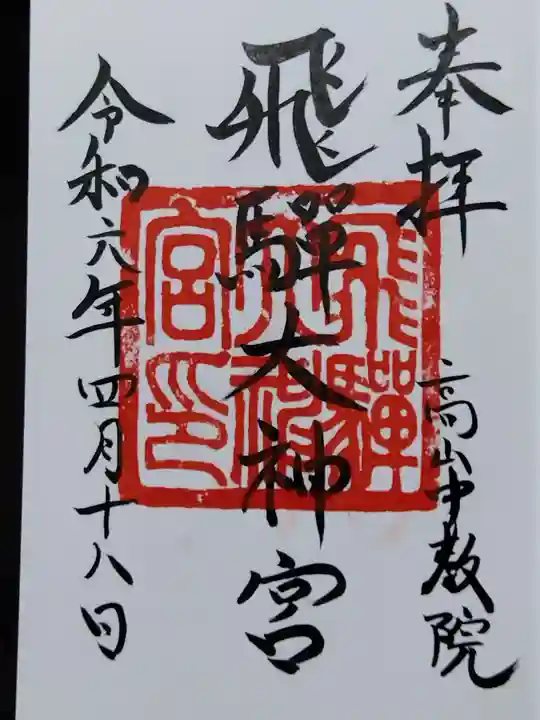 奉拝
高山中教院
飛驒大神宮
飛驒大神宮印
令和六年四月十八日